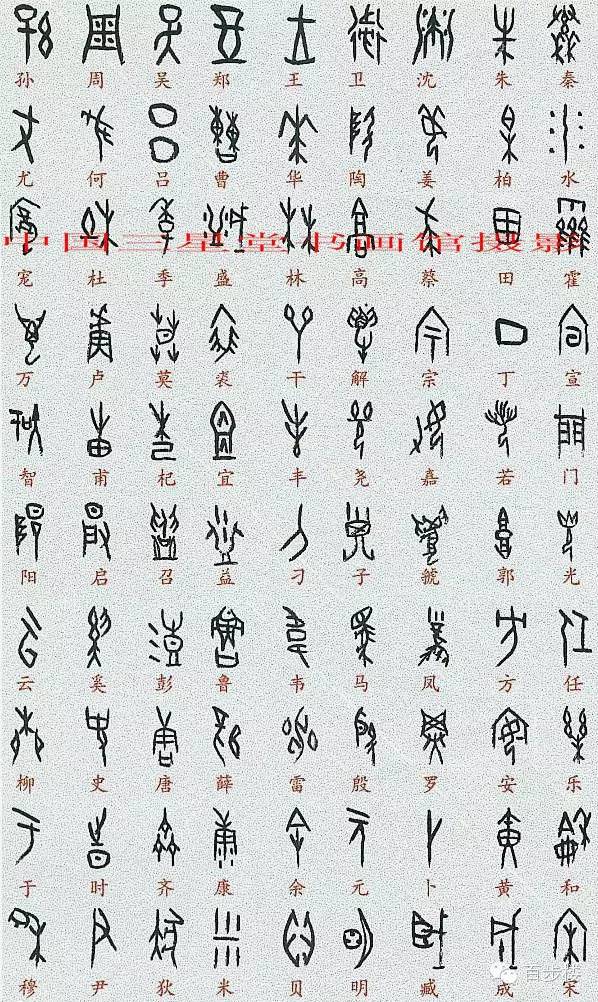 孙 周 吴 郑 王 卫 沈 朱 秦
尤 何 吕 曹 华 陶 姜 柏 水
中国三星堂书画馆摄影
宠 杜 季 盛 林 高 蔡 田 霍
万 卢 莫 裘 干 解 宗 丁 宣
智 甫 杞 宜 丰 尧 嘉 若 门
阳 启 召 益 刁 子 虢 郭 光
云 奚 彭 鲁 韦 马 凤 方 任
柳 史 唐 薛 雷 殷 罗 安 乐
于 时 齐 康 余 元 卜 黄 和
穆 尹 狄 米 贝 明 臧 成 宋
百步楼